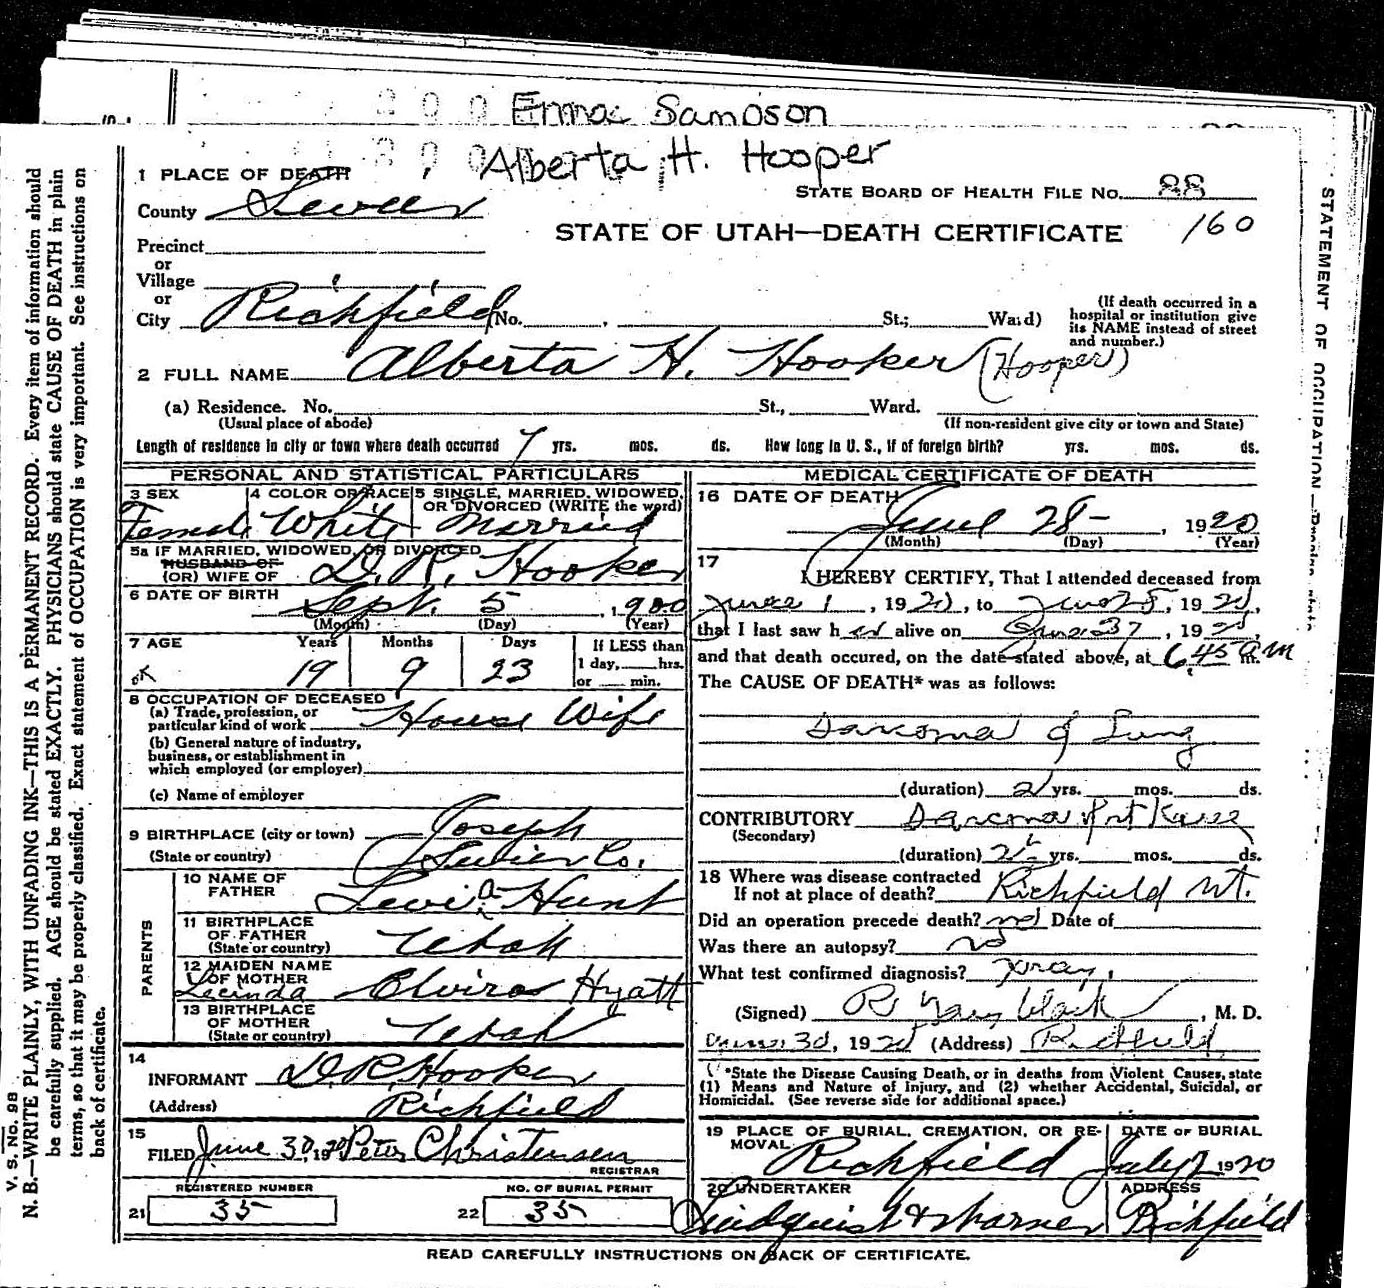 Emma Sampson
Alberta H. Hooper
1 PLACE OF DEATH
STATE BOARD OF HEALTH FILE No. 88
County Sevier
160
STATE OF UTAH—DEATH CERTIFICATE
Precinct
or
Village
or
City Richfield (No. , St.; Ward)
(If death occurred in a
hospital or institution give
its NAME instead of street
and number.)
2 FULL NAME Alberta H. Hooker (Hooper)
(a) Residence. No. St., Ward.
(Usual place of abode)
(If non-resident give city or town and State)
Length of residence in city or town where death occurred 7 yrs. mos. ds. How long in U. S., if of foreign birth? yrs. mos. ds.
PERSONAL AND STATISTICAL PARTICULARS
3 SEX
Female
4 COLOR OR RACE
White
5 SINGLE, MARRIED, WIDOWED,
OR DIVORCED (WRITE the word)
Married
5a IF MARRIED, WIDOWED, OR DIVORCED
HUSBAND OF
(OR) WIFE OF D. R. Hooker
6 DATE OF BIRTH Sept. 5, 1900
(Month) (Day) (Year)
7 AGE Years Months Days
19 9 23
If LESS than
1 day, hrs.
or min.
8 OCCUPATION OF DECEASED
(a) Trade, profession, or
particular kind of work House Wife
(b) General nature of industry,
business, or establishment in
which employed (or employer)
(c) Name of employer
9 BIRTHPLACE (city or town) Joseph
(State or country) Sevier Co.
PARENTS
10 NAME OF
FATHER Levi a Hunt
11 BIRTHPLACE
OF FATHER
(State or country) Utah
12 MAIDEN NAME
OF MOTHER
Lucinda Elvira Hyatt
13 BIRTHPLACE
OF MOTHER
(State or country) Utah
14
INFORMANT D. R. Hooker
(Address) Richfield
15
FILED June 30, 1920 Peter Christensen
REGISTRAR
REGISTERED NUMBER
21 35
NO. OF BURIAL PERMIT
22 35
MEDICAL CERTIFICATE OF DEATH
16 DATE OF DEATH
June 28-, 1920
(Month) (Day) (Year)
17
I HEREBY CERTIFY, That I attended deceased from
June 1, 1920, to June 28, 1920,
that I last saw her alive on June 27, 1920,
and that death occured, on the date stated above, at 6,45 am m.
The CAUSE OF DEATH* was as follows:
Sarcoma of Lung
(duration) 2 yrs. mos. ds.
CONTRIBUTORY Sarcoma of rt Knee
(Secondary)
(duration) 2½ yrs. mos. ds.
18 Where was disease contracted
If not at place of death? Richfield Ut.
Did an operation precede death? no Date of
Was there an autopsy? no
What test confirmed diagnosis? xray,
(Signed) , M. D.
June 30, 1920 (Address) Richfield
*State the Disease Causing Death, or in deaths from Violent Causes, state
(1) Means and Nature of Injury, and (2) whether Accidental, Suicidal, or
Homicidal. (See reverse side for additional space.)
19 PLACE OF BURIAL, CREMATION, OR RE-
MOVAL
Richfield
DATE OF BURIAL
July 1 1920
20 UNDERTAKER
Lindquist & Warner
ADDRESS
Richfield
READ CAREFULLY INSTRUCTIONS ON BACK OF CERTIFICATE.
V. S. No. 98
N. B.—WRITE PLAINLY, WITH UNFADING INK—THIS IS A PERMANENT RECORD. Every item of information should
be carefully supplied. AGE should be stated EXACTLY. PHYSICIANS should state CAUSE OF DEATH in plain
terms, so that it may be properly classified. Exact statement of OCCUPATION is very important. See instructions on
back of certificate.
STATEMENT OF OCCUPATION